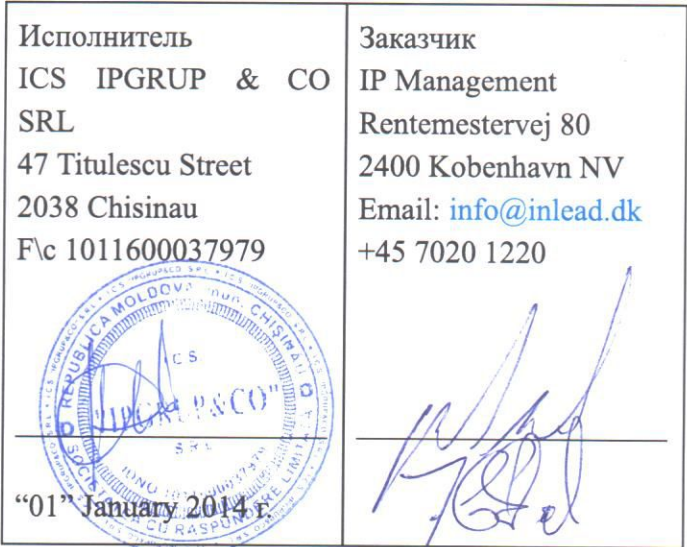 Исполнитель
ICS IPGRUP & CO
SRL
47 Titulescu Street
2038 Chisinau
F\c 1011600037979
REPUBLICA MOLDOVA mun. CHIŞINĂU
SOCIETATEA CU RĂSPUNDERE LIMITATĂ
ICS
"IPGRUP&CO"
SRL
“01” January 2014 г.
Заказчик
IP Management
Rentemestervej 80
2400 Kobenhavn NV
Email: info@inlead.dk
+45 7020 1220